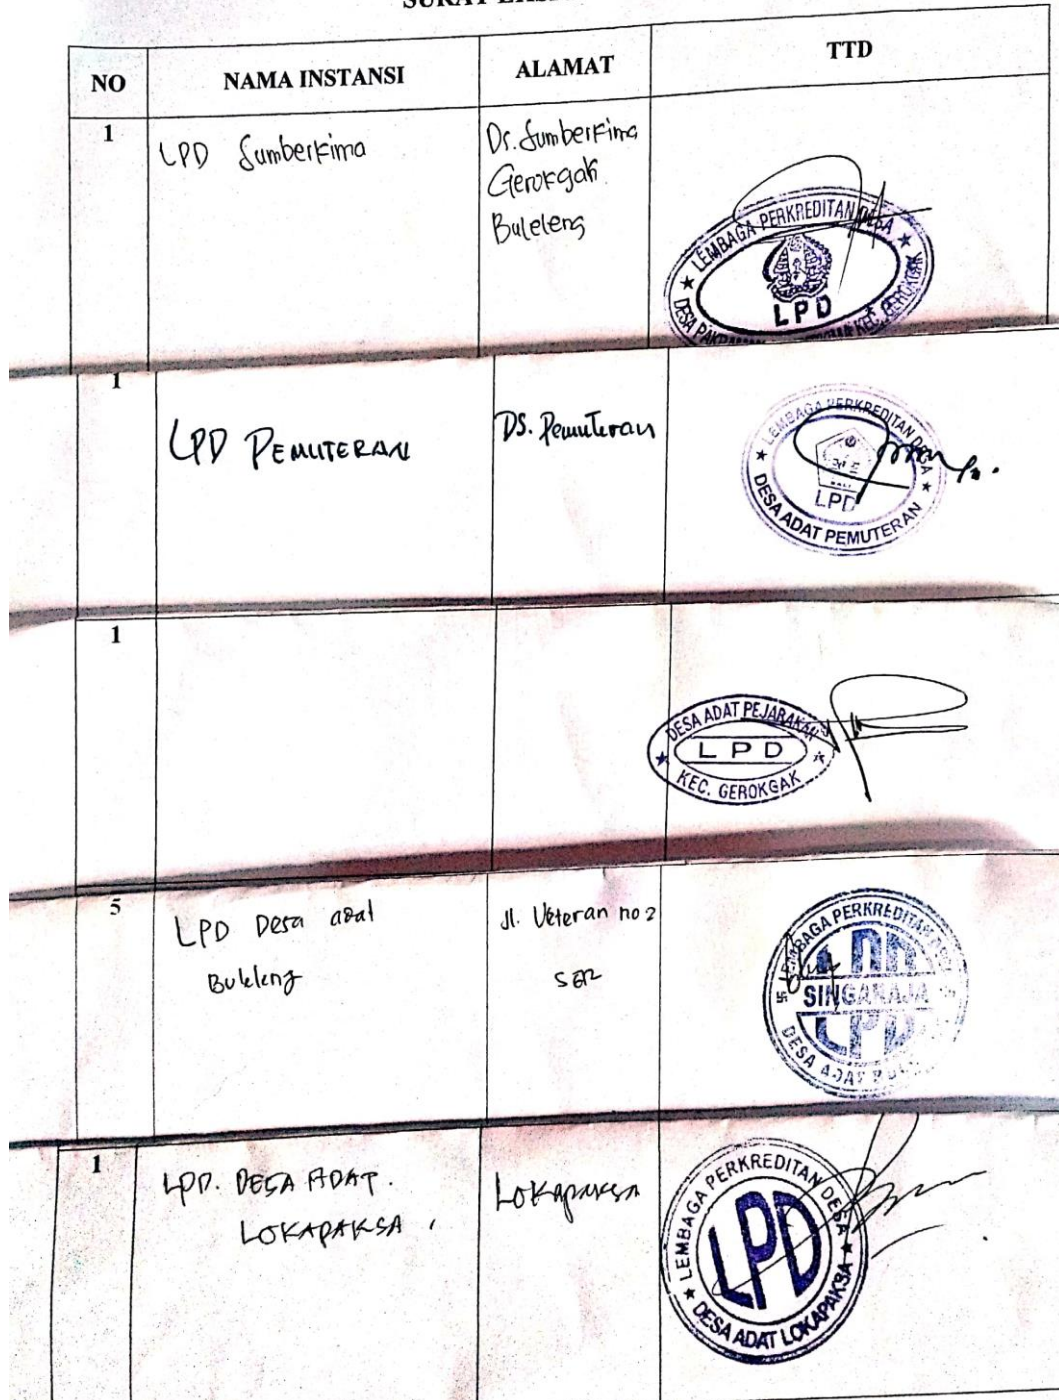 NO NAMA INSTANSI ALAMAT TTD
1 LPD Sumberkima Ds. Sumberkima
Gerokgak
Buleleng
LEMBAGA PERKREDITAN DESA
LPD
DESA KEC. GEROKGAK
1 LPD PEMUTERAN DS. Pemuteran
LEMBAGA PERKREDITAN DESA
BALI
LPD
DESA ADAT PEMUTERAN
1
DESA ADAT PEJARAKAN
LPD
KEC. GEROKGAK
5 LPD Desa adat Jl. Veteran no 2
Buleleng
LEMBAGA PERKREDITAN DESA
SINGARAJA
LPD
DESA ADAT
1 LPD. DESA ADAT. Lokapaksa
LOKAPAKSA
LEMBAGA PERKREDITAN DESA
LPD
DESA ADAT LOKAPAKSA